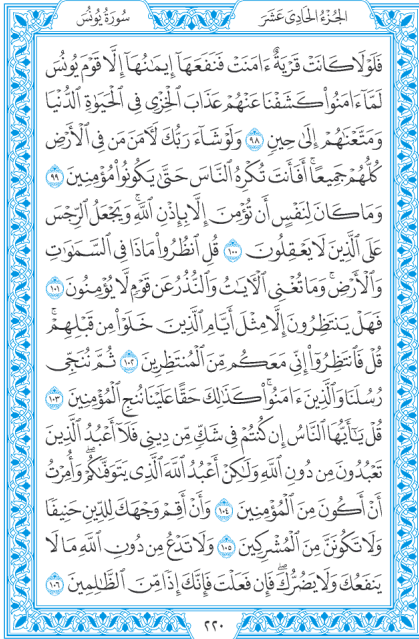 الجزء الحادي عشر
سورة يونس
فَلَوْلَا كَانَتْ قَرْيَةٌ ءَامَنَتْ فَنَفَعَهَآ إِيمَٰنُهَآ إِلَّا قَوْمَ يُونُسَ
لَمَّآ ءَامَنُوا۟ كَشَفْنَا عَنْهُمْ عَذَابَ ٱلْخِزْىِ فِى ٱلْحَيَوٰةِ ٱلدُّنْيَا
وَمَتَّعْنَٰهُمْ إِلَىٰ حِينٍ ٩٨ وَلَوْ شَآءَ رَبُّكَ لَـَٔامَنَ مَن فِى ٱلْأَرْضِ
كُلُّهُمْ جَمِيعًا ۚ أَفَأَنتَ تُكْرِهُ ٱلنَّاسَ حَتَّىٰ يَكُونُوا۟ مُؤْمِنِينَ ٩٩
وَمَا كَانَ لِنَفْسٍ أَن تُؤْمِنَ إِلَّا بِإِذْنِ ٱللَّهِ ۚ وَيَجْعَلُ ٱلرِّجْسَ
عَلَى ٱلَّذِينَ لَا يَعْقِلُونَ ١٠٠ قُلِ ٱنظُرُوا۟ مَاذَا فِى ٱلسَّمَٰوَٰتِ
وَٱلْأَرْضِ ۚ وَمَا تُغْنِى ٱلْـَٔايَٰتُ وَٱلنُّذُرُ عَن قَوْمٍ لَّا يُؤْمِنُونَ ١٠١
فَهَلْ يَنتَظِرُونَ إِلَّا مِثْلَ أَيَّامِ ٱلَّذِينَ خَلَوْا۟ مِن قَبْلِهِمْ ۚ
قُلْ فَٱنتَظِرُوٓا۟ إِنِّى مَعَكُم مِّنَ ٱلْمُنتَظِرِينَ ١٠٢ ثُمَّ نُنَجِّى
رُسُلَنَا وَٱلَّذِينَ ءَامَنُوا۟ ۚ كَذَٰلِكَ حَقًّا عَلَيْنَا نُنجِ ٱلْمُؤْمِنِينَ ١٠٣
قُلْ يَٰٓأَيُّهَا ٱلنَّاسُ إِن كُنتُمْ فِى شَكٍّ مِّن دِينِى فَلَآ أَعْبُدُ ٱلَّذِينَ
تَعْبُدُونَ مِن دُونِ ٱللَّهِ وَلَٰكِنْ أَعْبُدُ ٱللَّهَ ٱلَّذِى يَتَوَفَّىٰكُمْ ۖ وَأُمِرْتُ
أَنْ أَكُونَ مِنَ ٱلْمُؤْمِنِينَ ١٠٤ وَأَنْ أَقِمْ وَجْهَكَ لِلدِّينِ حَنِيفًا
وَلَا تَكُونَنَّ مِنَ ٱلْمُشْرِكِينَ ١٠٥ وَلَا تَدْعُ مِن دُونِ ٱللَّهِ مَا لَا
يَنفَعُكَ وَلَا يَضُرُّكَ ۖ فَإِن فَعَلْتَ فَإِنَّكَ إِذًا مِّنَ ٱلظَّٰلِمِينَ ١٠٦
٢٢٠